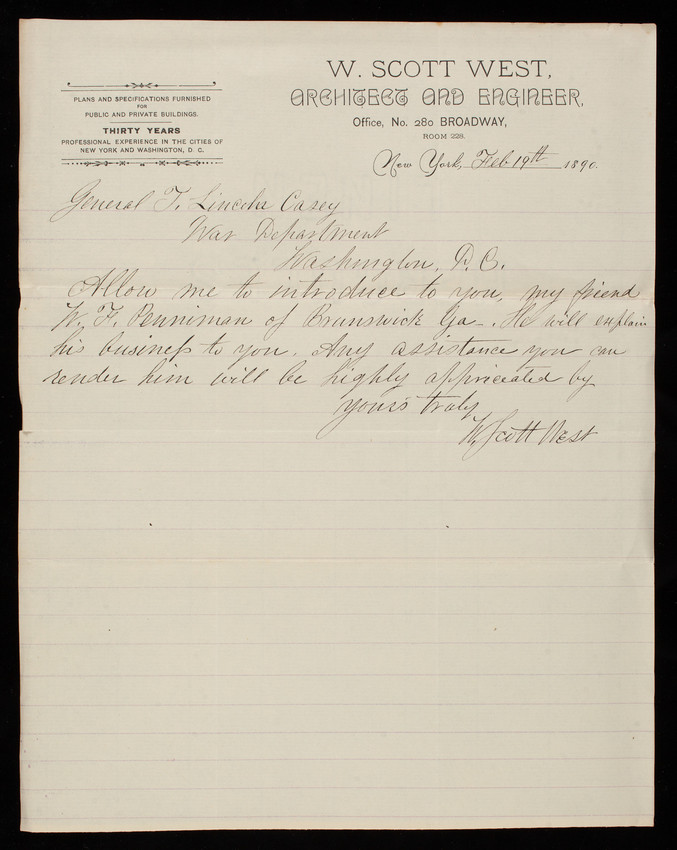 PLANS AND SPECIFICATIONS FURNISHED
FOR
PUBLIC AND PRIVATE BUILDINGS.
THIRTY YEARS
PROFESSIONAL EXPERIENCE IN THE CITIES OF
NEW YORK AND WASHINGTON, D. C.
W. SCOTT WEST,
ARCHITECT AND ENGINEER,
Office, No. 280 BROADWAY,
ROOM 228.
New York, Feb 19th 1890.
General T. Lincoln Casey
War Department
Washington, D.C.
Allow me to introduce to you, my friend
W. F. Penniman of Brunswick Ga-. He will explain
his business to you. Any assistance you can
render him will be highly appriceated by
yours truly
W. Scott West